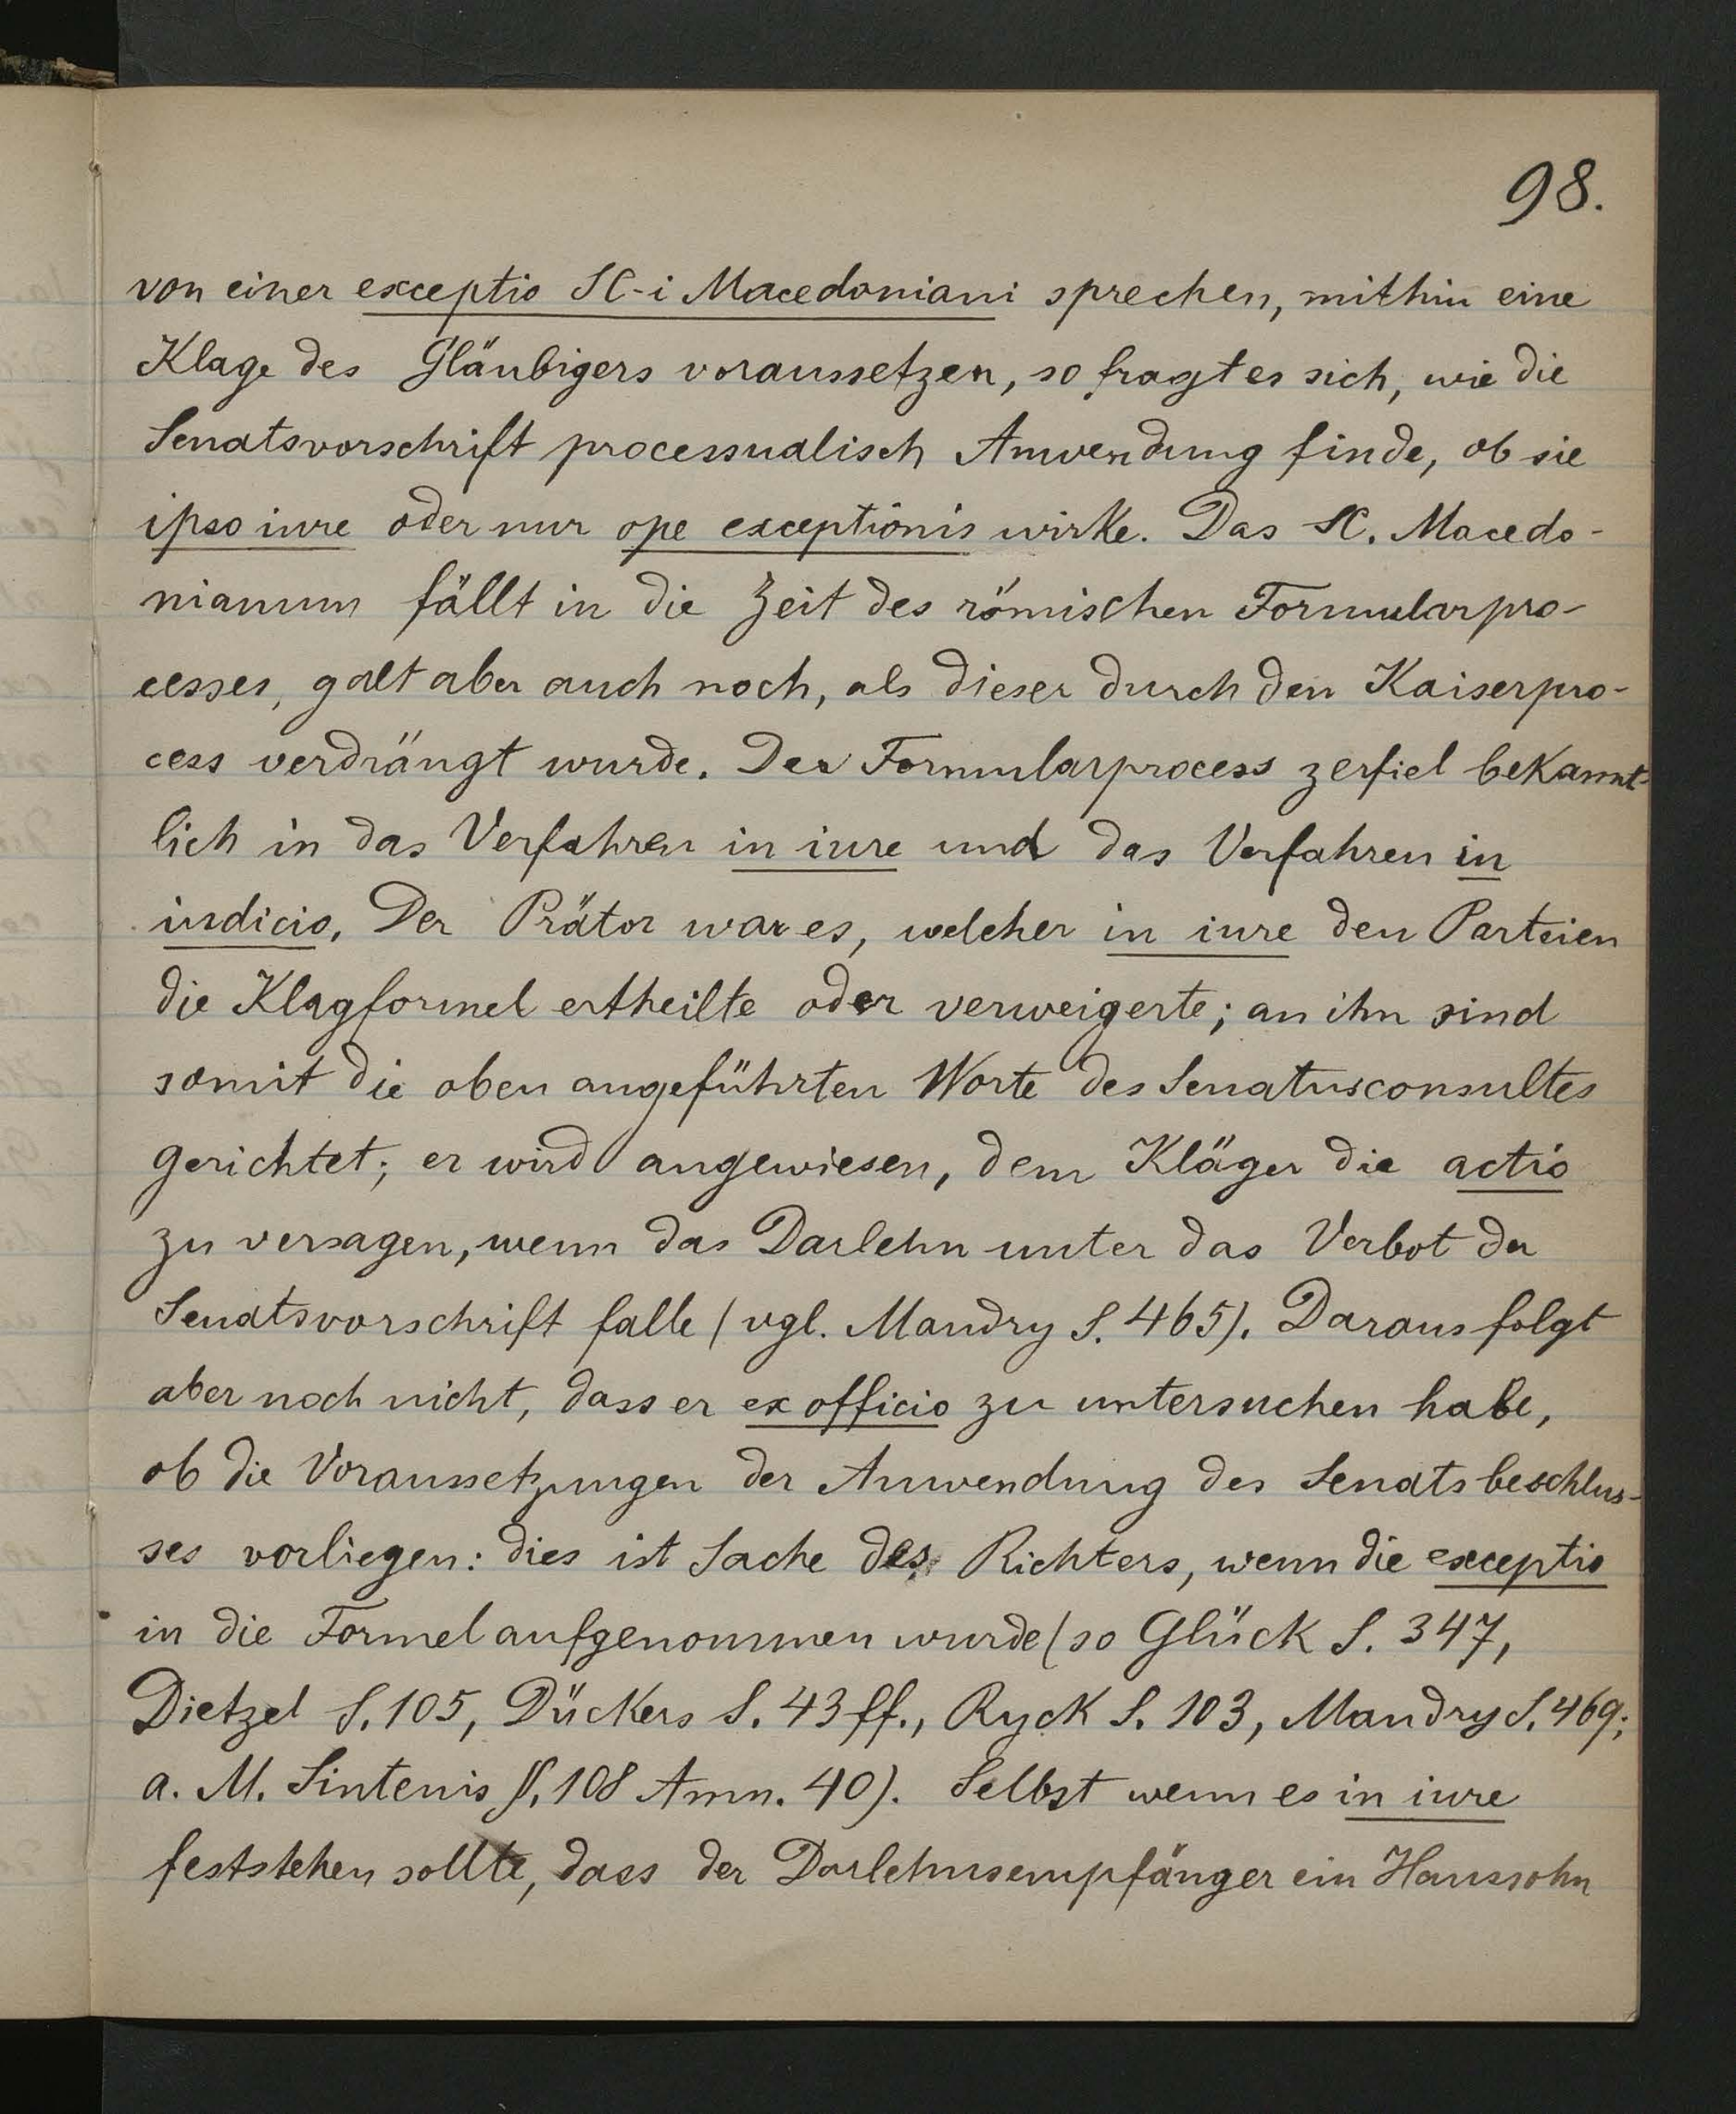 98.
von einer exceptio SC-i Macedoniani sprechen, mithin eine
Klage des Gläubigers voraussetzen, so fragt es sich, wie die
Senatsvorschrift processualisch Anwendung finde, ob sie
ipso iure oder nur ope exceptionis wirke. Das SC. Macedo-
nianum fällt in die Zeit des römischen Formularpro-
cesses, galt aber auch noch, als dieser durch den Kaiserpro-
cess verdrängt wurde. Der Formularprocess zerfiel bekannt-
lich in das Verfahren in iure und das Verfahren in
iudicio. Der Prätor war es, welcher in iure den Parteien
die Klagformel ertheilte oder verweigerte; an ihn sind
somit die oben angeführten Worte des Senatusconsultes
gerichtet; er wird angewiesen, dem Kläger die actio
zu versagen, wenn das Darlehn unter das Verbot der
Senatsvorschrift falle (vgl. Mandry S. 465). Daraus folgt
aber noch nicht, dass er ex officio zu untersuchen habe,
ob die Voraussetzungen der Anwendung des Senatsbeschlus-
ses vorliegen: dies ist Sache des Richters, wenn die exceptio
in die Formel aufgenommen wurde (so Glück S. 347,
Dietzel S. 105, Dückers S. 43 ff., Ryck S. 103, Mandry S. 469;
a. M. Sintenis §. 108 Anm. 40). Selbst wenn es in iure
feststehen sollte, dass der Darlehnsempfänger ein Haussohn